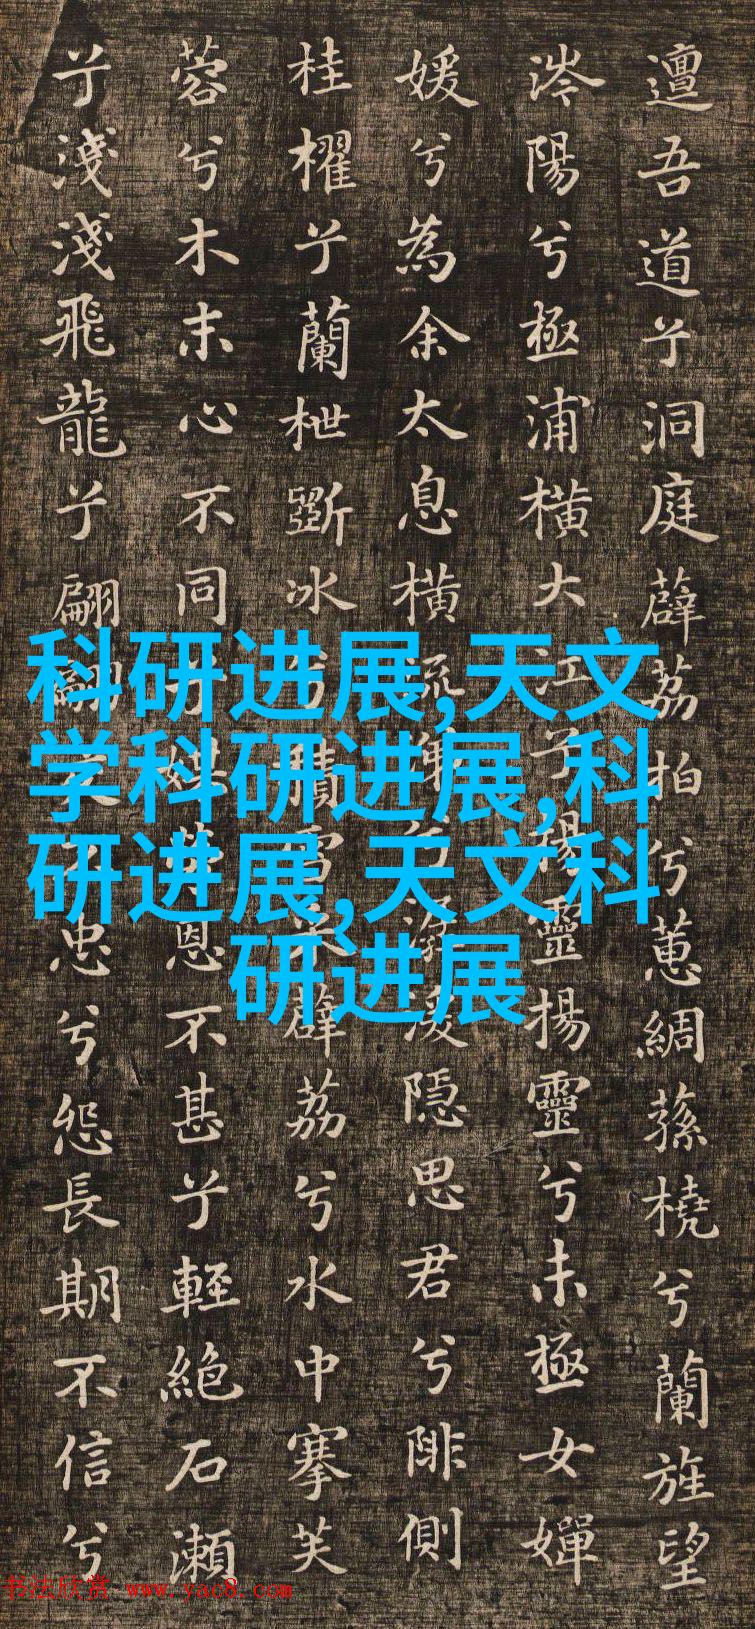 邅吾道兮洞庭薜荔柏兮蕙綢蓀橈兮蘭旌望
涔陽兮極浦橫大江兮揚靈揚靈兮未極女嬋
媛兮為余太息橫流涕兮潺湲隱思君兮陫側
桂櫂兮蘭枻斲冰兮積雪采薜荔兮水中搴芙
蓉兮木末心不同兮媒勞恩不甚兮輕絕石瀨
兮淺淺飛龍兮翩翩交不忠兮怨長期不信兮
科研进展,天文
学科研进展,科
研进展,天文科
研进展
书法欣赏 www.yac8.com